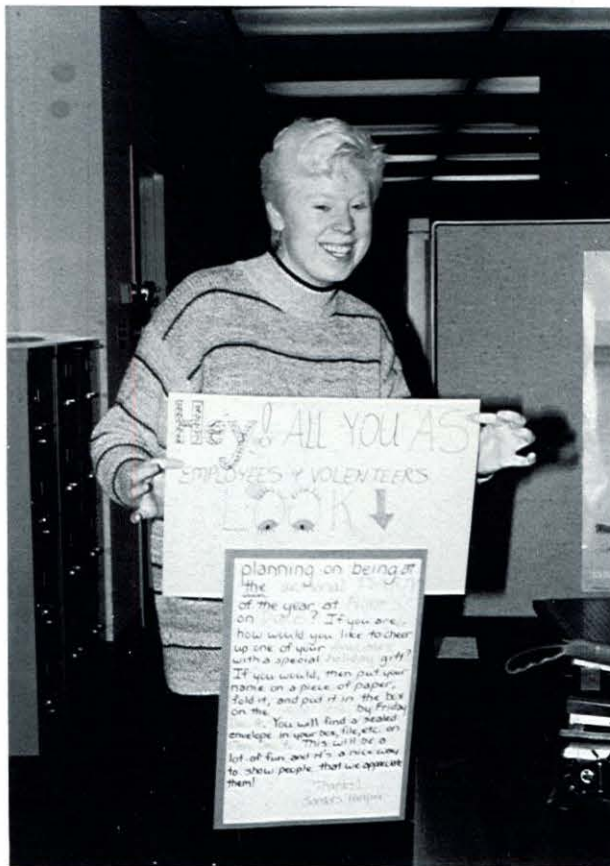 Hey! ALL YOU AS
EMPLOYEES & VOLENTEERS
LOOK
planning on being at
the
of the year, at
on ? If you are,
how would you like to cheer
up one of your
with a special holiday gift?
If you would, then put your
name on a piece of paper,
fold it, and put it in the box
on the by Friday
You will find a sealed
envelope in your box, file, etc. on
This will be a
lot of fun and it's a nice way
to show people that we appreciate
them!
Thanks!